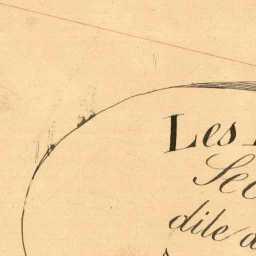 Les
Sec
dile d